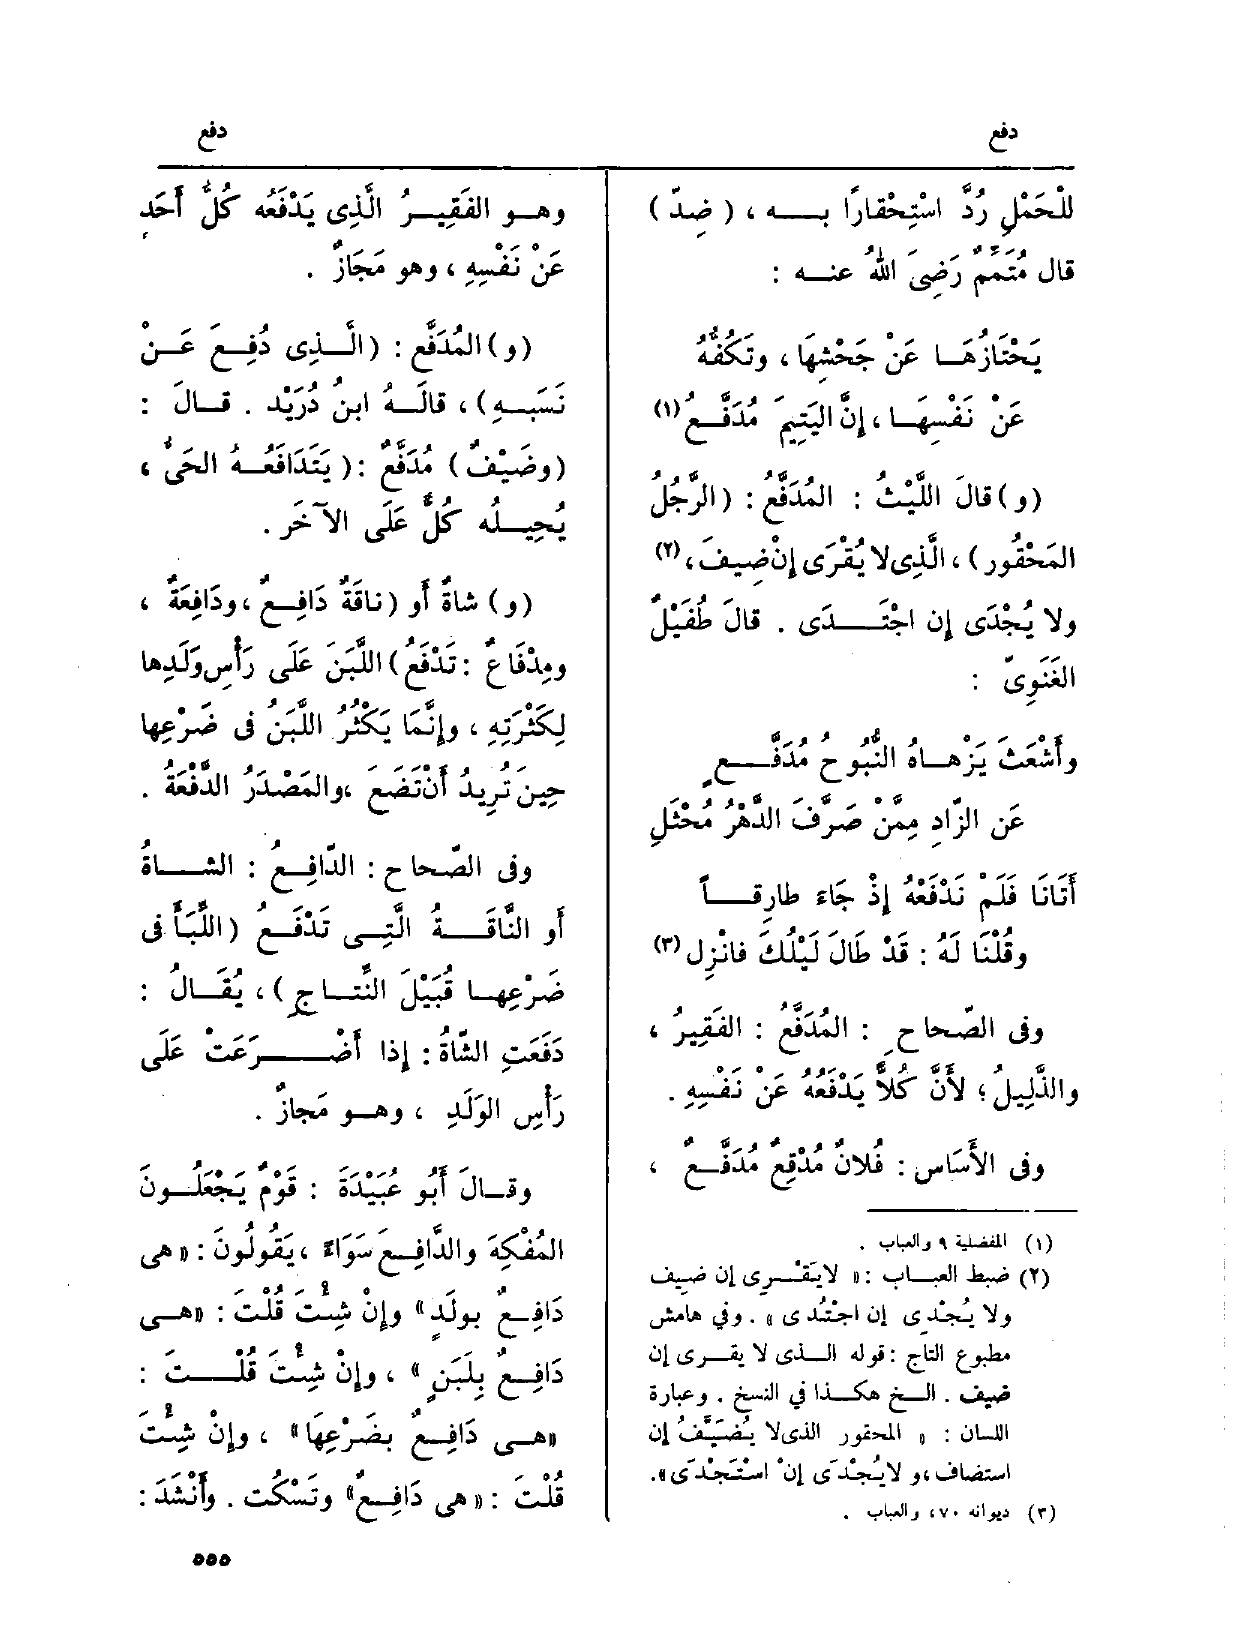 دفع
دفع
لِلْحَمْلِ رُدَّ اسْتِحْقارًا بـــه ، ( ضِدّ )
قال مُتَمِّمٌ رَضِىَ اللهُ عنــه :
يَحْتَازُهَــا عَنْ جَحْشِهَا ، وتَكُفُّهُ
عَنْ نَفْسِهَــا ، إِنَّ اليَتِيمَ مُدَفَّــعُ (١)
(و) قالَ اللَّيْثُ : المُدَفَّعُ : (الرَّجُلُ
المَحْقُور) ، الَّذِى لا يُقْرَى إِنْ ضِيفَ، (٢)
ولا يُجْدَى إِن اجْتَـــدَى . قالَ طُفَيْلٌ
الغَنَوِىّ :
وأَشْعَثَ يَزْهَــاهُ النُّبُوحُ مُدَفَّــعٍ
عَن الزّادِ مِمَّنْ صَرَّفَ الدَّهْرُ مُحْثَلِ
أَتَانَا فَلَمْ نَدْفَعْهُ إِذْ جَاءَ طارِقــاً
وقُلْنَا لَهُ : قَدْ طَالَ لَيْلُكَ فانْزِلِ (٣)
وفى الصّحاحِ : المُدَفَّعُ : الفَقِيرُ ،
والذَّلِيلُ ؛ لأَنَّ كُلاًّ يَدْفَعُهُ عَنْ نَفْسِهِ .
وفى الأَسَاسِ : فُلانٌ مُدْقِعٌ مُدَفَّــعٌ ،
(١) المفضلية ٩ والعباب .
(٢) ضبط العبــاب : « لايَقْــرِى إن ضِيف
ولا يُجْدِى إن اجتُدى » . وفي هامش
مطبوع التاج : قوله الــذى لا يقــرى إن
ضيف . الــخ هكــذا في النسخ . وعبارة
اللسان : « المحقور الذى لا يُضَيَّفُ إن
استضاف ، و لا يُجْدَى إنْ اسْتَجْدَى ».
(٣) ديوانه ٧٠ ، والعباب .
وهــو الفَقِيــرُ الَّذِى يَدْفَعُه كُلُّ أَحَدٍ
عَنْ نَفْسِهِ ، وهو مَجَازٌ .
(و) المُدَفَّع : (الَّــذِى دُفِــعَ عَــنْ
نَسَبِــهِ) ، قالَــهُ ابنُ دُرَيْد . قــالَ :
(وضَيْفٌ) مُدَفَّعٌ : (يَتَدَافَعُــهُ الحَىُّ ،
يُحِيــلُه كُلٌّ عَلَى الآخَر .
(و) شاةٌ أَو (ناقَةٌ دَافِــعٌ ، ودَافِعَةٌ ،
ومِدْفَاعٌ : تَدْفَعُ) اللَّبَنَ عَلَى رَأْسِ وَلَدِها
لِكَثْرَتِهِ ، وإِنَّمَا يَكْثُرُ اللَّبَنُ فى ضَرْعِها
حِينَ تُرِيدُ أَنْ تَضَعَ ، والمَصْدَرُ الدَّفْعَةُ .
وفى الصّحاح : الدّافِــعُ : الشــاةُ
أَو النَّاقَــةُ الَّتِــى تَدْفَــعُ (اللِّبَأَ فى
ضَرْعِهــا قُبَيْلَ النَّتــاجِ) ، يُقَــالُ :
دَفَعَتِ الشّاةُ : إِذا أَضْــرَعَتْ عَلَى
رَأْسِ الوَلَدِ ، وهــو مَجازٌ .
وقــالَ أَبُو عُبَيْدَةَ : قَوْمٌ يَجْعَلُــونَ
المُفْكِهَ والدَّافِــعَ سَوَاءً ، يَقُولُونَ : «هى
دَافِــعٌ بولَدٍ» وإِنْ شِئْتَ قُلْتَ : «هــى
دَافِــعٌ بِلَبَنٍ» ، وإِنْ شِئْتَ قُلْــتَ :
«هــى دَافِــعٌ بضَرْعِهَا» ، وإِنْ شِئْتَ
قُلْتَ : «هى دَافِــعٌ» وتَسْكُت . وأَنْشَدَ :
٥٥٥